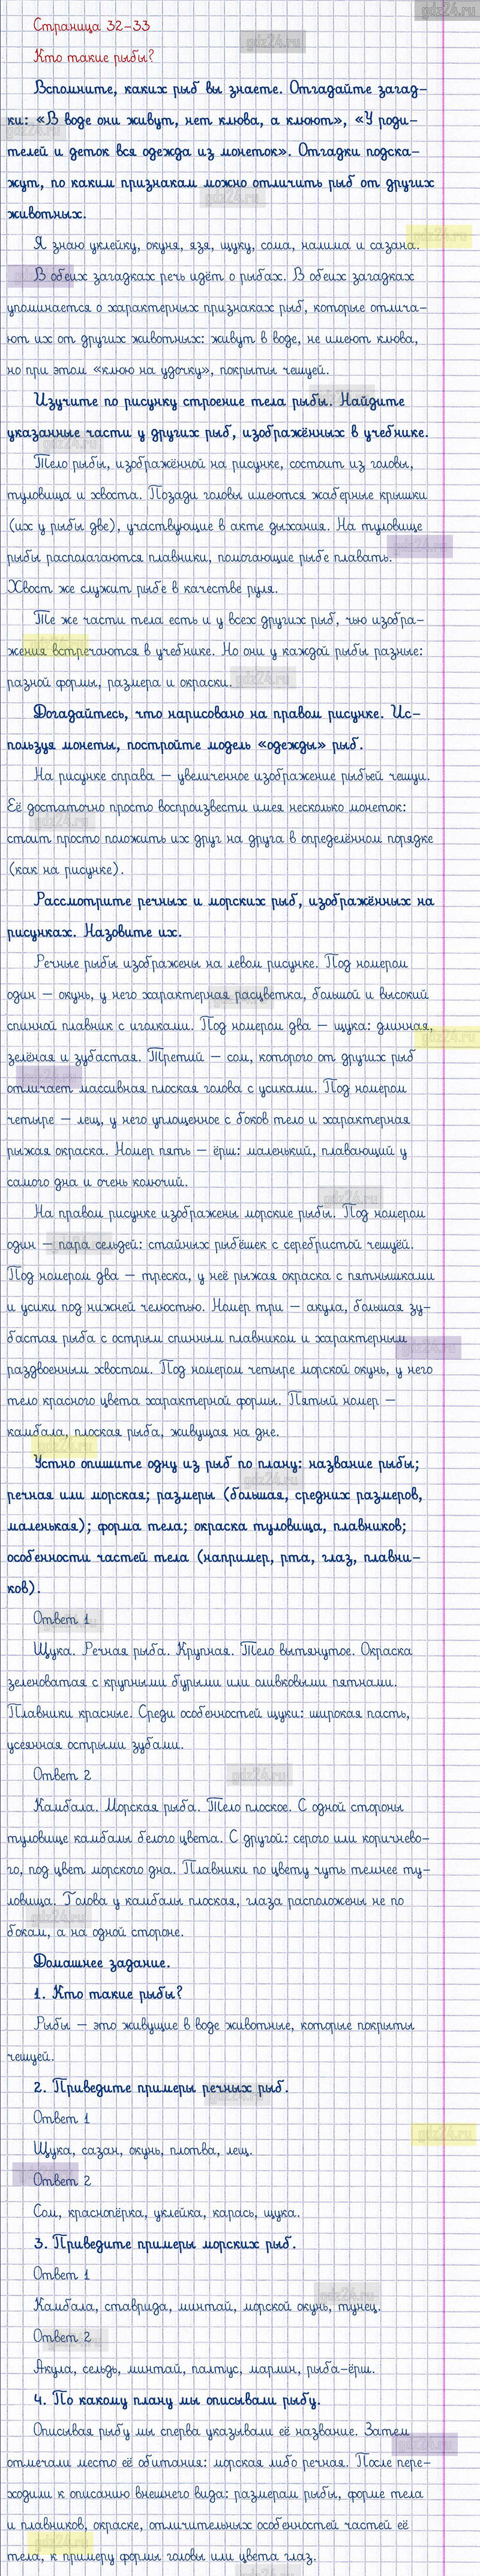 Страница 32-33
Кто такие рыбы?
Вспомните, каких рыб вы знаете. Отгадайте загад-
ки: «В воде они живут, нет клюва, а клюют», «У роди-
телей и деток вся одежда из монеток». Отгадки подска-
жут, по каким признакам можно отличить рыб от других
животных.
Я знаю уклейку, окуня, язя, щуку, сома, налима и сазана.
В обеих загадках речь идёт о рыбах. В обеих загадках
упоминается о характерных признаках рыб, которые отлича-
ют их от других животных: живут в воде, не имеют клюва,
но при этом «клюю на удочку», покрыты чешуей.
Изучите по рисунку строение тела рыбы. Найдите
указанные части у других рыб, изображённых в учебнике.
Тело рыбы, изображённой на рисунке, состоит из головы,
туловища и хвоста. Позади головы имеются жаберные крышки
(их у рыбы две), участвующие в акте дыхания. На туловище
рыбы располагаются плавники, помогающие рыбе плавать.
Хвост же служит рыбе в качестве руля.
Те же части тела есть и у всех других рыб, чьи изобра-
жения встречаются в учебнике. Но они у каждой рыбы разные:
разной формы, размера и окраски.
Догадайтесь, что нарисовано на правом рисунке. Ис-
пользуя монеты, постройте модель «одежды» рыб.
На рисунке справа — увеличенное изображение рыбьей чешуи.
Её достаточно просто воспроизвести имея несколько монеток:
стоит просто положить их друг на друга в определённом порядке
(как на рисунке).
Рассмотрите речных и морских рыб, изображённых на
рисунках. Назовите их.
Речные рыбы изображены на левом рисунке. Под номером
один — окунь, у него характерная расцветка, большой и высокий
спинной плавник с иголками. Под номером два — щука: длинная,
зелёная и зубастая. Третий — сом, которого от других рыб
отличает массивная плоская голова с усиками. Под номером
четыре — лещ, у него уплощенное с боков тело и характерная
рыжая окраска. Номер пять — ёрш: маленький, плавающий у
самого дна и очень колючий.
На правом рисунке изображены морские рыбы. Под номером
один — пара сельдей: стайных рыбёшек с серебристой чешуёй.
Под номером два — треска, у неё рыжая окраска с пятнышками
и усики под нижней челюстью. Номер три — акула, большая зу-
бастая рыба с острым спинным плавником и характерным
раздвоенным хвостом. Под номером четыре морской окунь, у него
тело красного цвета характерной формы. Пятый номер —
камбала, плоская рыба, живущая на дне.
Устно опишите одну из рыб по плану: название рыбы;
речная или морская; размеры (большая, средних размеров,
маленькая); форма тела; окраска туловища, плавников;
особенности частей тела (например, рта, глаз, плавни-
ков).
Ответ 1
Щука. Речная рыба. Крупная. Тело вытянутое. Окраска
зеленоватая с крупными бурыми или оливковыми пятнами.
Плавники красные. Среди особенностей щуки: широкая пасть,
усеянная острыми зубами.
Ответ 2
Камбала. Морская рыба. Тело плоское. С одной стороны
туловище камбалы белого цвета. С другой: серого или коричнево-
го, под цвет морского дна. Плавники по цвету чуть темнее ту-
ловища. Голова у камбалы плоская, глаза расположены не по
бокам, а на одной стороне.
Домашнее задание.
1. Кто такие рыбы?
Рыбы — это живущие в воде животные, которые покрыты
чешуей.
2. Приведите примеры речных рыб.
Ответ 1
Щука, сазан, окунь, плотва, лещ.
Ответ 2
Сом, краснопёрка, уклейка, карась, щука.
3. Приведите примеры морских рыб.
Ответ 1
Камбала, ставрида, минтай, морской окунь, тунец.
Ответ 2
Акула, сельдь, минтай, палтус, марлин, рыба-ёрш.
4. По какому плану мы описывали рыбу.
Описывая рыбу мы сперва указывали её название. Затем
отмечали место её обитания: морская либо речная. После пере-
ходили к описанию внешнего вида: размерам рыбы, форме тела
и плавников, окраске, отличительных особенностей частей её
тела, к примеру формы головы или цвета глаз.